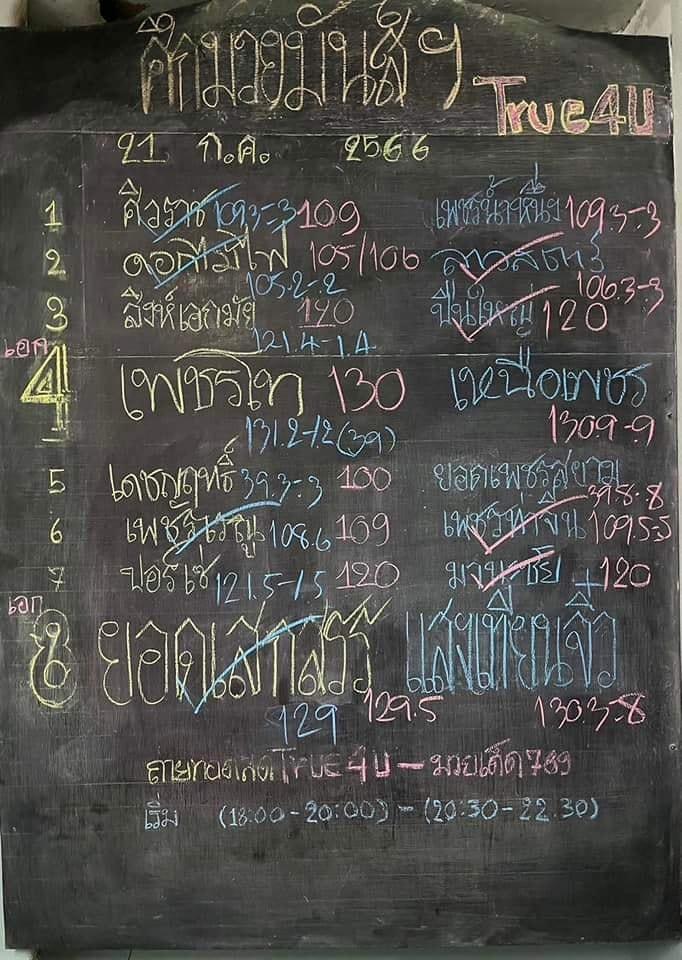 ศึกมวยมันส์ฯ
True4U
21 ก.ค. 2566
1 ศิวราช 109.3-.3 109 เพชรน้ำหนึ่ง 109.3-.3
2 ดอกไม้ไฟ 105/106
105.2-.2 106.3-.3
3 สิงห์เอกมัย 120 ปืนใหญ่ 120
121.4-1.4
เอก
4 เพชรโท 130 เหนือเพชร
131.2-1.2(39) 130.9-.9
5 เดชฤทธิ์ 39.3-.3 100 ยอดเพชรสยาม
6 เพชรเจริญ 108.6 109 เพชรท่าจีน 109.5-.5
7 ปอร์เช่ 121.5-1.5 120 120
เอก
8 ยอดเสกสรร แสงเทียนจิ๋ว
129 129.5 130.3-.8
ถ่ายทอดสด True4U - มวยเด็ด789
เริ่ม (18:00-20:00) - (20:30-22.30)